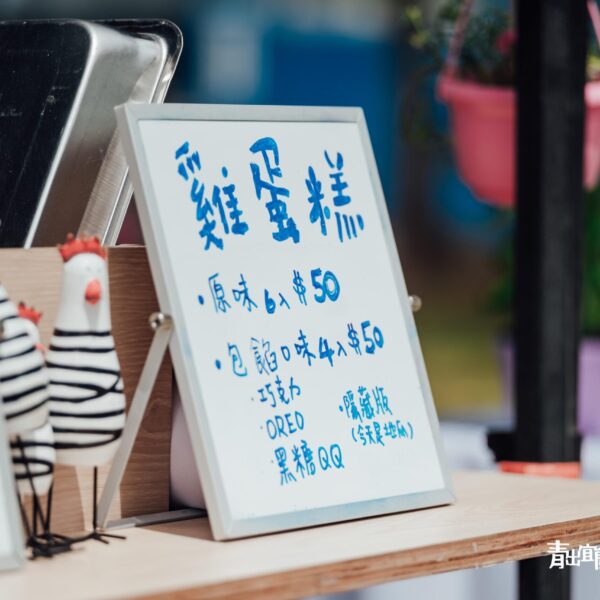 雞蛋糕
·原味6入$50
·包餡口味4入$50
·巧克力
·OREO
·黑糖QQ
·隱藏版
(今天是地瓜)
青出宜